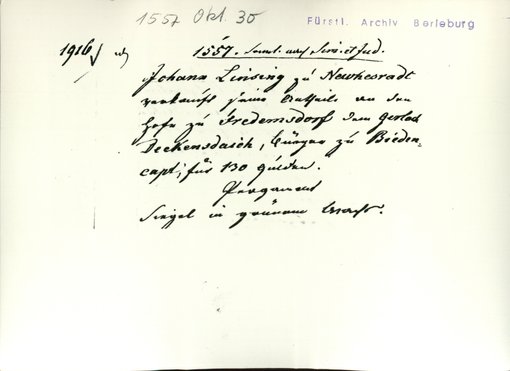 1557 Okt. 30
Fürstl. Archiv Berleburg
1916
1557. Sonnt. nach Sim. et Jud.
Johann Linsing zu Newkesradt
verkauft seine Antheile an dem
Hofe zu Fredemsdorf dem Gerlach
Deckensdasch, Bürger zu Bieden-
capt, für 130 gulden.
Pergament
Siegel in grünem Wachs.